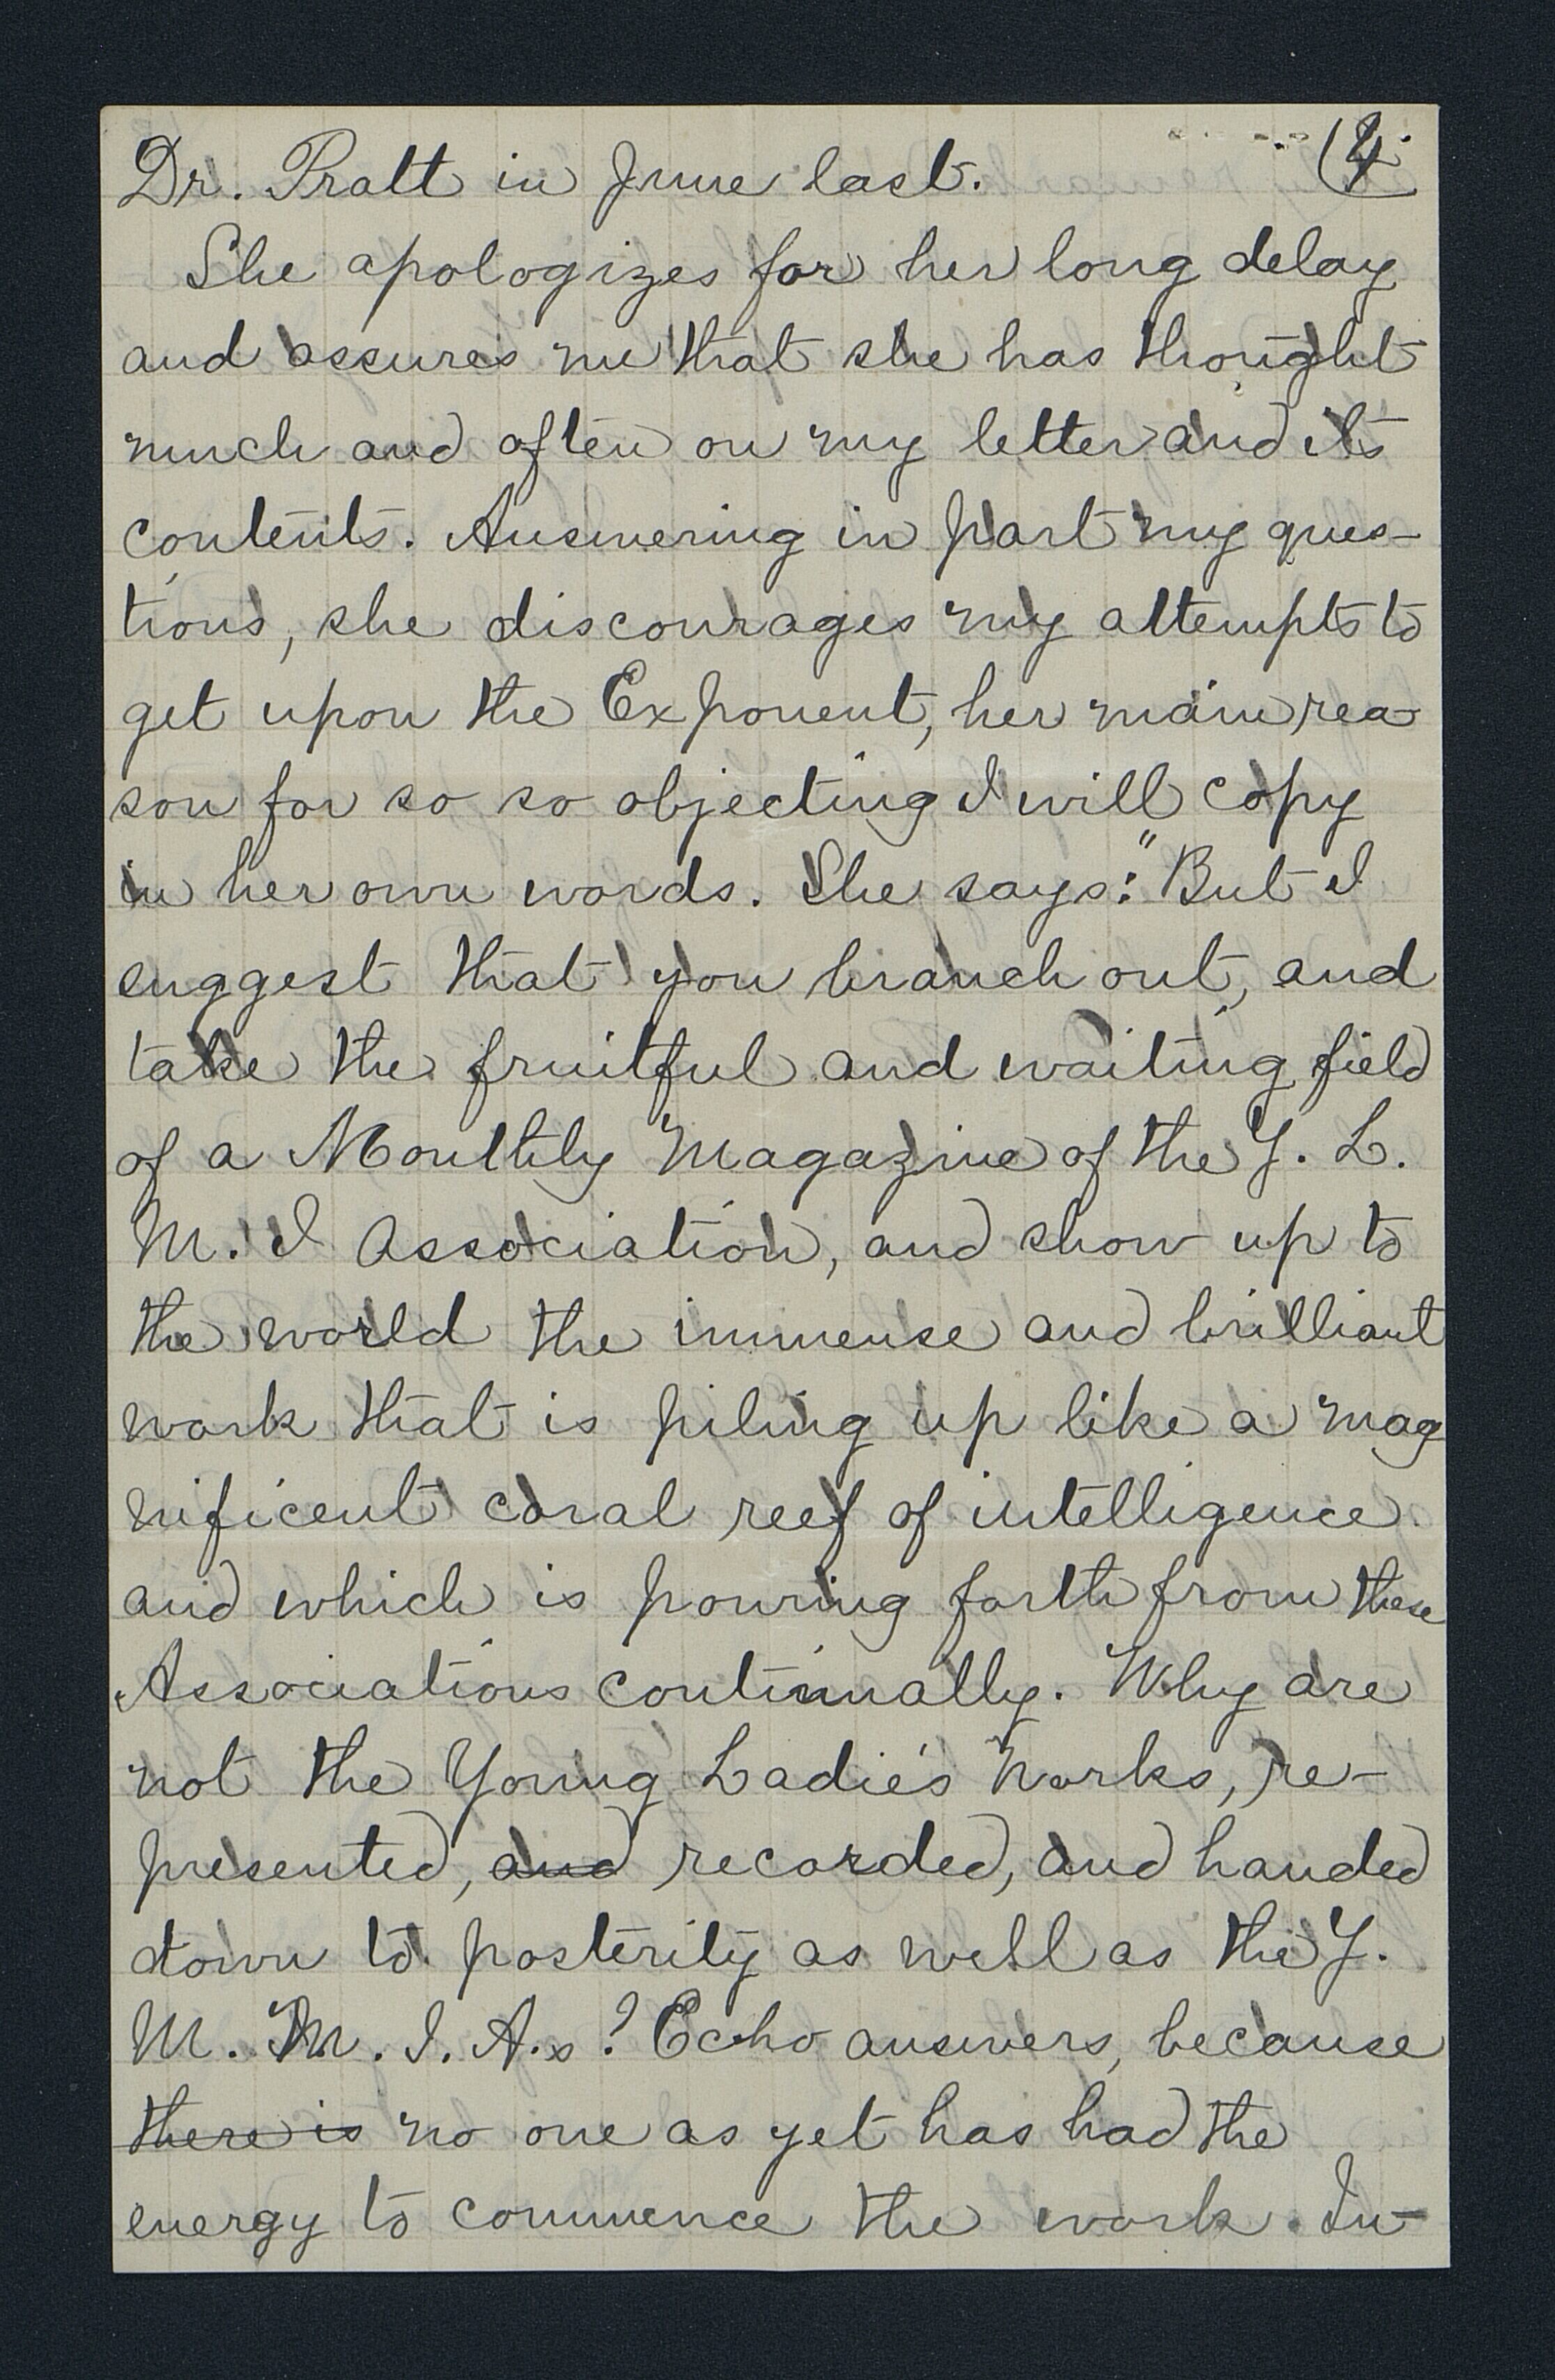 Dr. Pratt in June last. (4
She apologizes for her long delay
and assures me that she has thought
much and often on my letter and its
contents. Answering in part my ques-
tions, she discourages my attempts to
get upon the Exponent, her main rea
son for so so objecting I will copy
in her own words. She says: "But I
suggest that you branch out, and
take the fruitful and waiting field
of a Monthly Magazine of the Y. L.
M. I Association, and show up to
the world the immense and brilliant
work that is piling up like a mag
nificent coral reef of intelligence
and which is pouring forth from these
Associations continually. Why are
not the Young Ladie's works, re-
presented, and recorded, and handed
down to posterity as well as the Y.
M. M. I. A.s? Echo answers, because
there is no one as yet has had the
energy to commence the work. In-